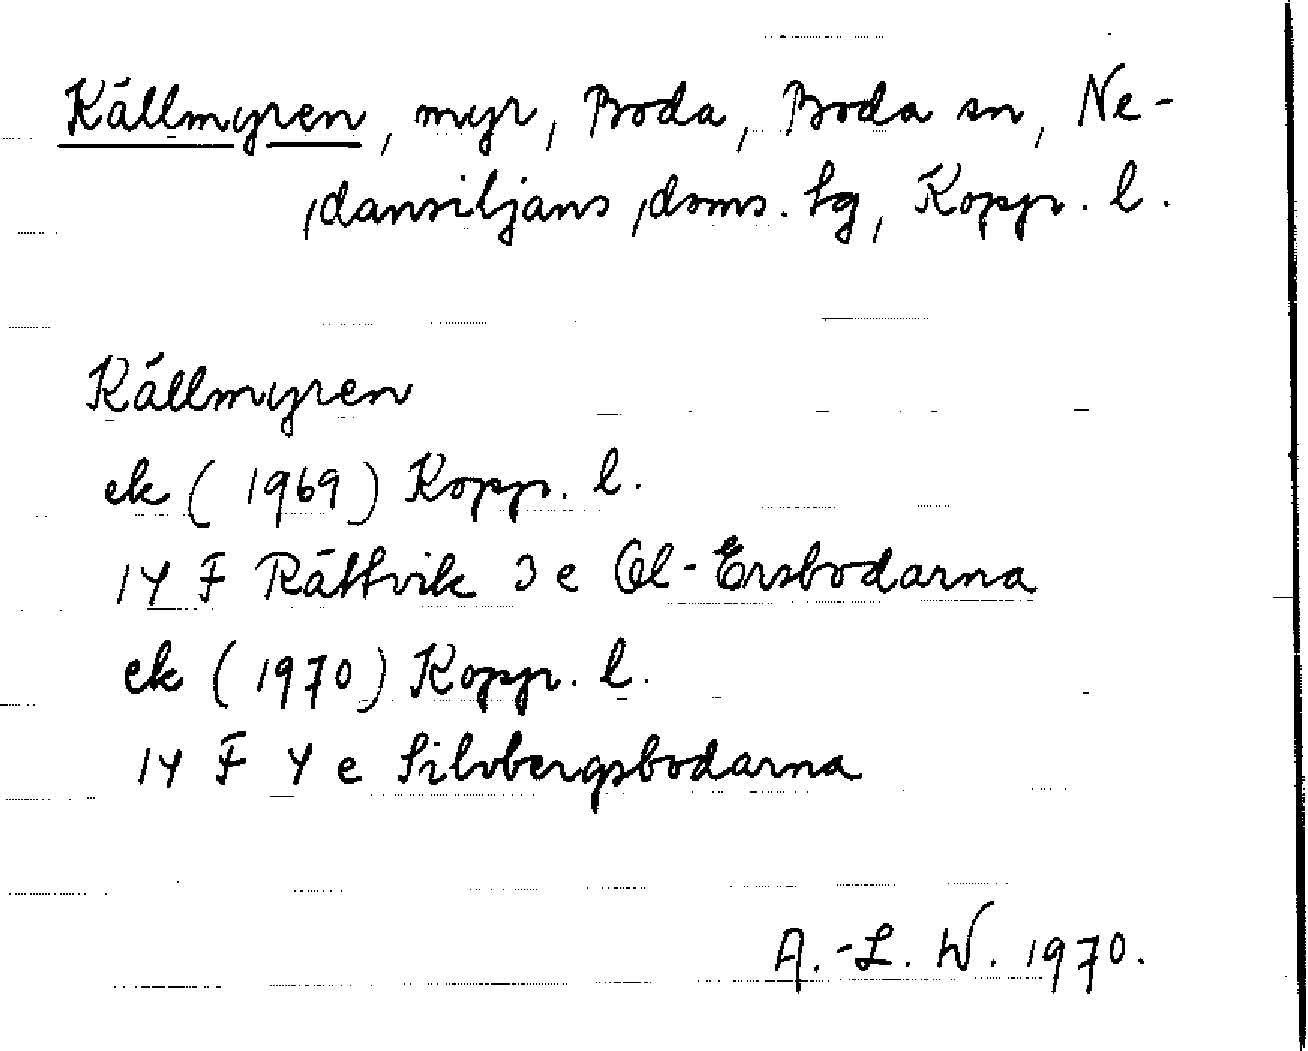 Källmyren, myr, Boda, Boda sn, Ne-
dansiljans doms. tg, Kopp. l.
Källmyren
ek (1969) Kopp. l.
14 F Rättvik 3 e Ol-Ersbodarna
ek (1970) Kopp. l.
14 F 4 e Silvbergsbodarna
A.-L. W. 1970.